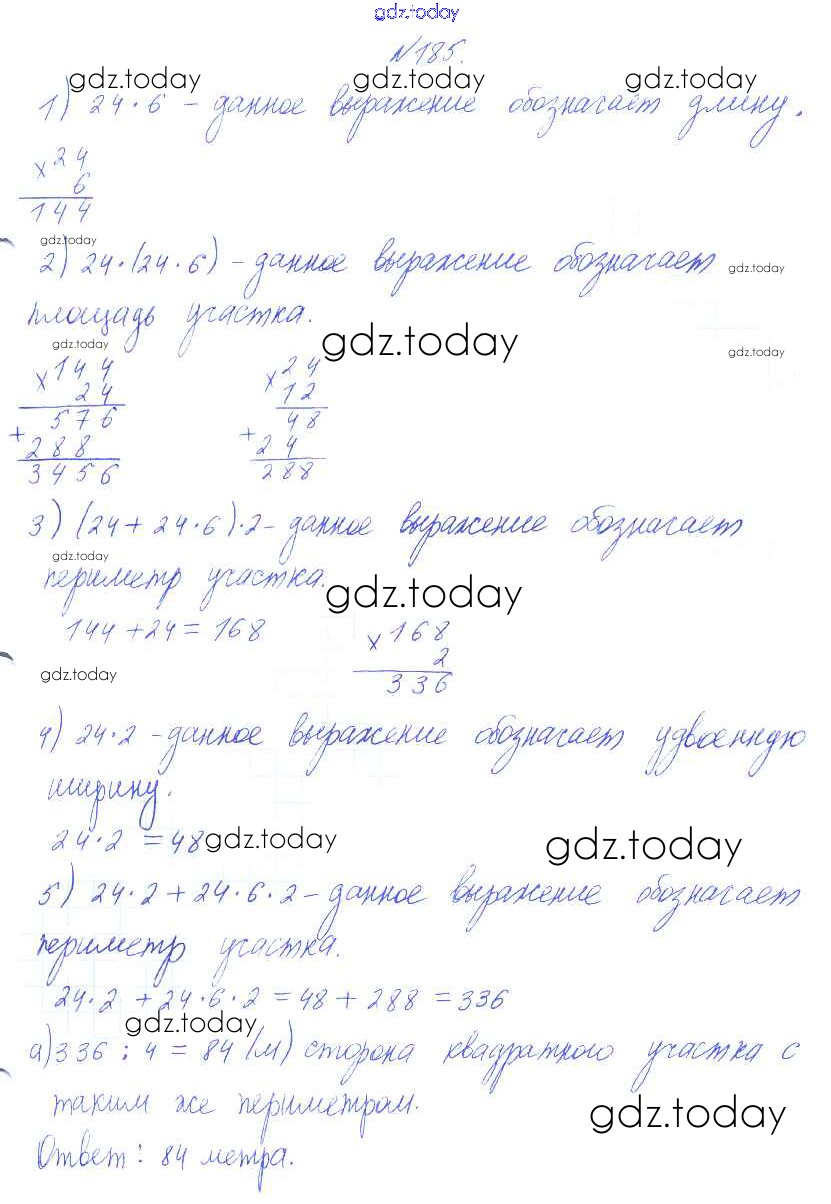 gdz.today
№185.
gdz.today gdz.today gdz.today
1) 24·6 - данное выражение обозначает длину.
×24
6
144
gdz.today
2) 24·(24·6) - данное выражение обозначает
gdz.today
площадь участка.
gdz.today gdz.today gdz.today
×144 ×24
24 12
576 48
+288 +24
3456 288
3) (24+24·6)·2 - данное выражение обозначает
gdz.today
периметр участка.
gdz.today
144+24=168 ×168
2
gdz.today 336
4) 24·2 - данное выражение обозначает удвоенную
ширину.
24·2 = 48 gdz.today gdz.today
5) 24·2+24·6·2 - данное выражение обозначает
периметр участка.
24·2 + 24·6·2 = 48 + 288 = 336
gdz.today
а) 336 : 4 = 84 (м) сторона квадратного участка с
таким же периметром.
gdz.today
Ответ: 84 метра.